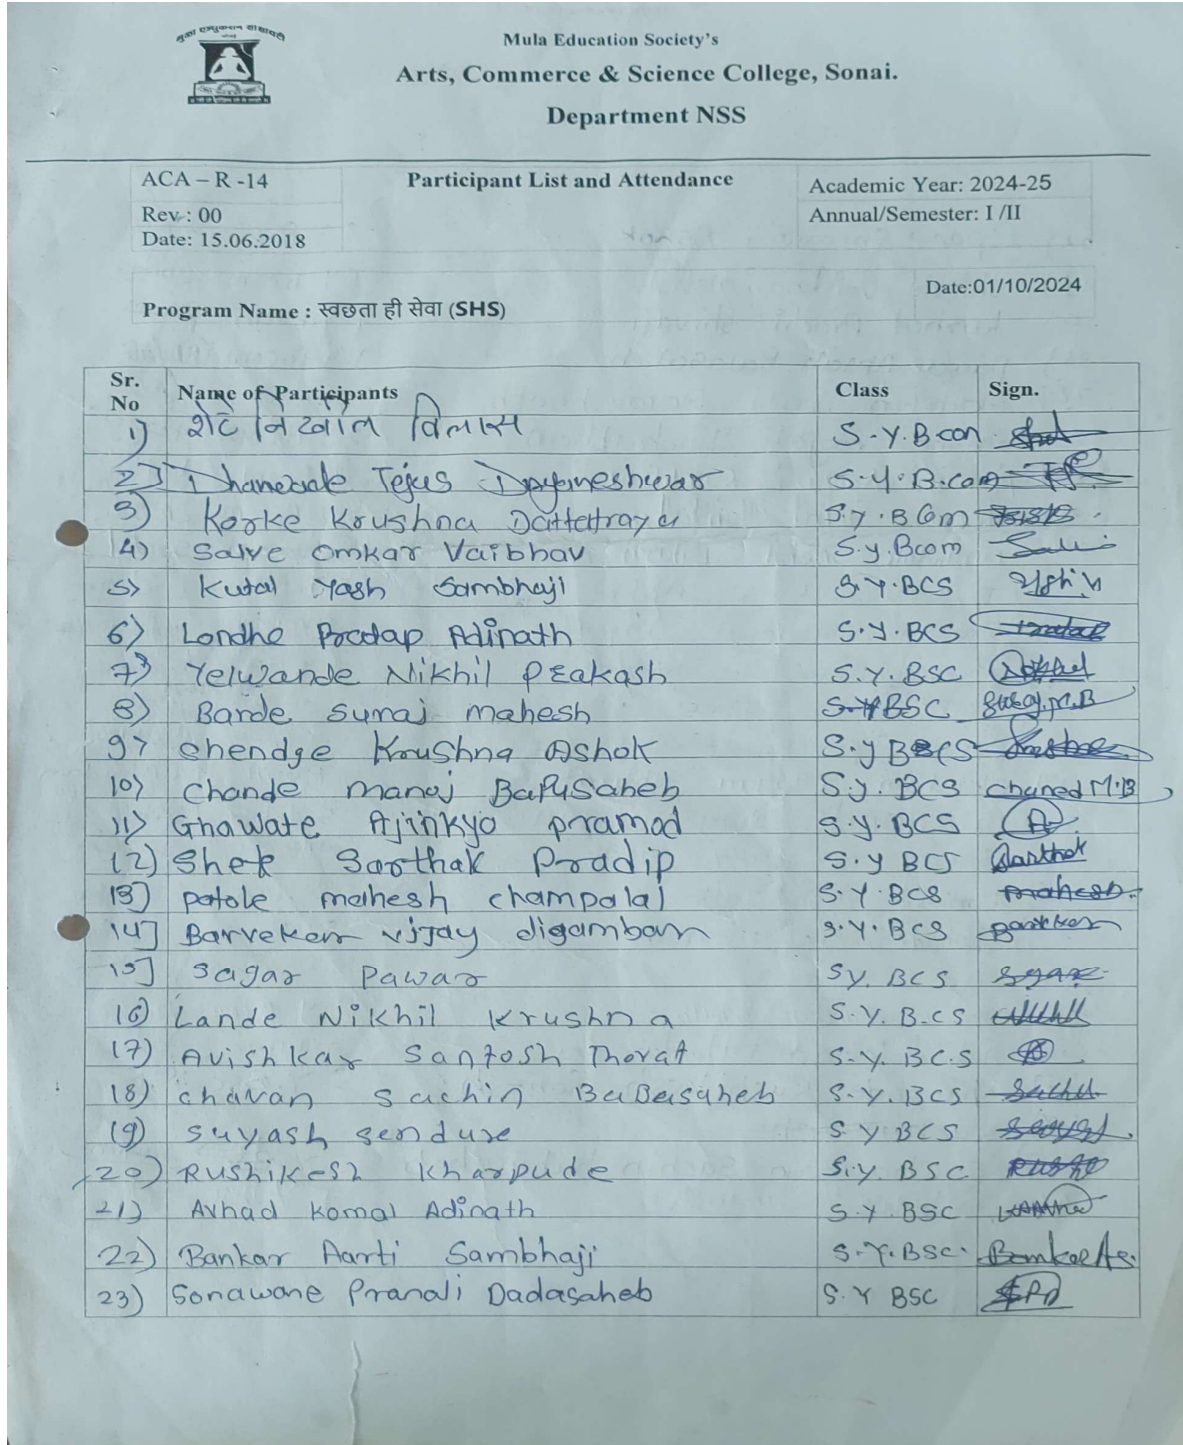 Mula Education Society's
Arts, Commerce & Science College, Sonai.
Department NSS
ACA – R -14 Participant List and Attendance Academic Year: 2024-25
Rev : 00 Annual/Semester: I /II
Date: 15.06.2018
Date:01/10/2024
Program Name : स्वछता ही सेवा (SHS)
Sr. No Name of Participants Class Sign.
1) शेटे निखील विलास S.Y.Bcom
2) Dhanwade Tejas Dnyaneshwar S.Y.B.com
3) Korke Krushna Dattattraya S.y.BCom
4) Salve Omkar Vaibhav S.y.Bcom
5) Kutal Yash Sambhaji S.Y.BCS
6) Londhe Pratap Adinath S.Y.BCS
7) Yelwande Nikhil Prakash S.Y.BSC
8) Barde suraj mahesh S.Y BSC
9) Shendge Krushna Ashok S.y BCS
10) Chande manoj Bapusaheb S.y.BCS chaned M.B
11) Ghawate Ajinkyo pramod S.y.BCS
12) Shek Sarthak Pradip S.y BCS Sarthak
13) patole mahesh champalal S.Y.BCS mahesh
14) Barvekar vijay digambar S.Y.BCS
15] sagar Pawar SY.BCS
16) Lande Nikhil Krushna S.Y.B.CS
17) Avishkar Santosh Thorat S.Y.BC.S
18) chavan sachin Babasaheb S.Y.BCS
19) suyash sendure S.Y BCS
20) Rushikesh Kharpude S.Y.BSC
21) Avhad Komal Adinath S.Y.BSC
22) Bankar Aarti Sambhaji S.Y.BSC.
23) Sonawane Pranali Dadasaheb S.Y BSC